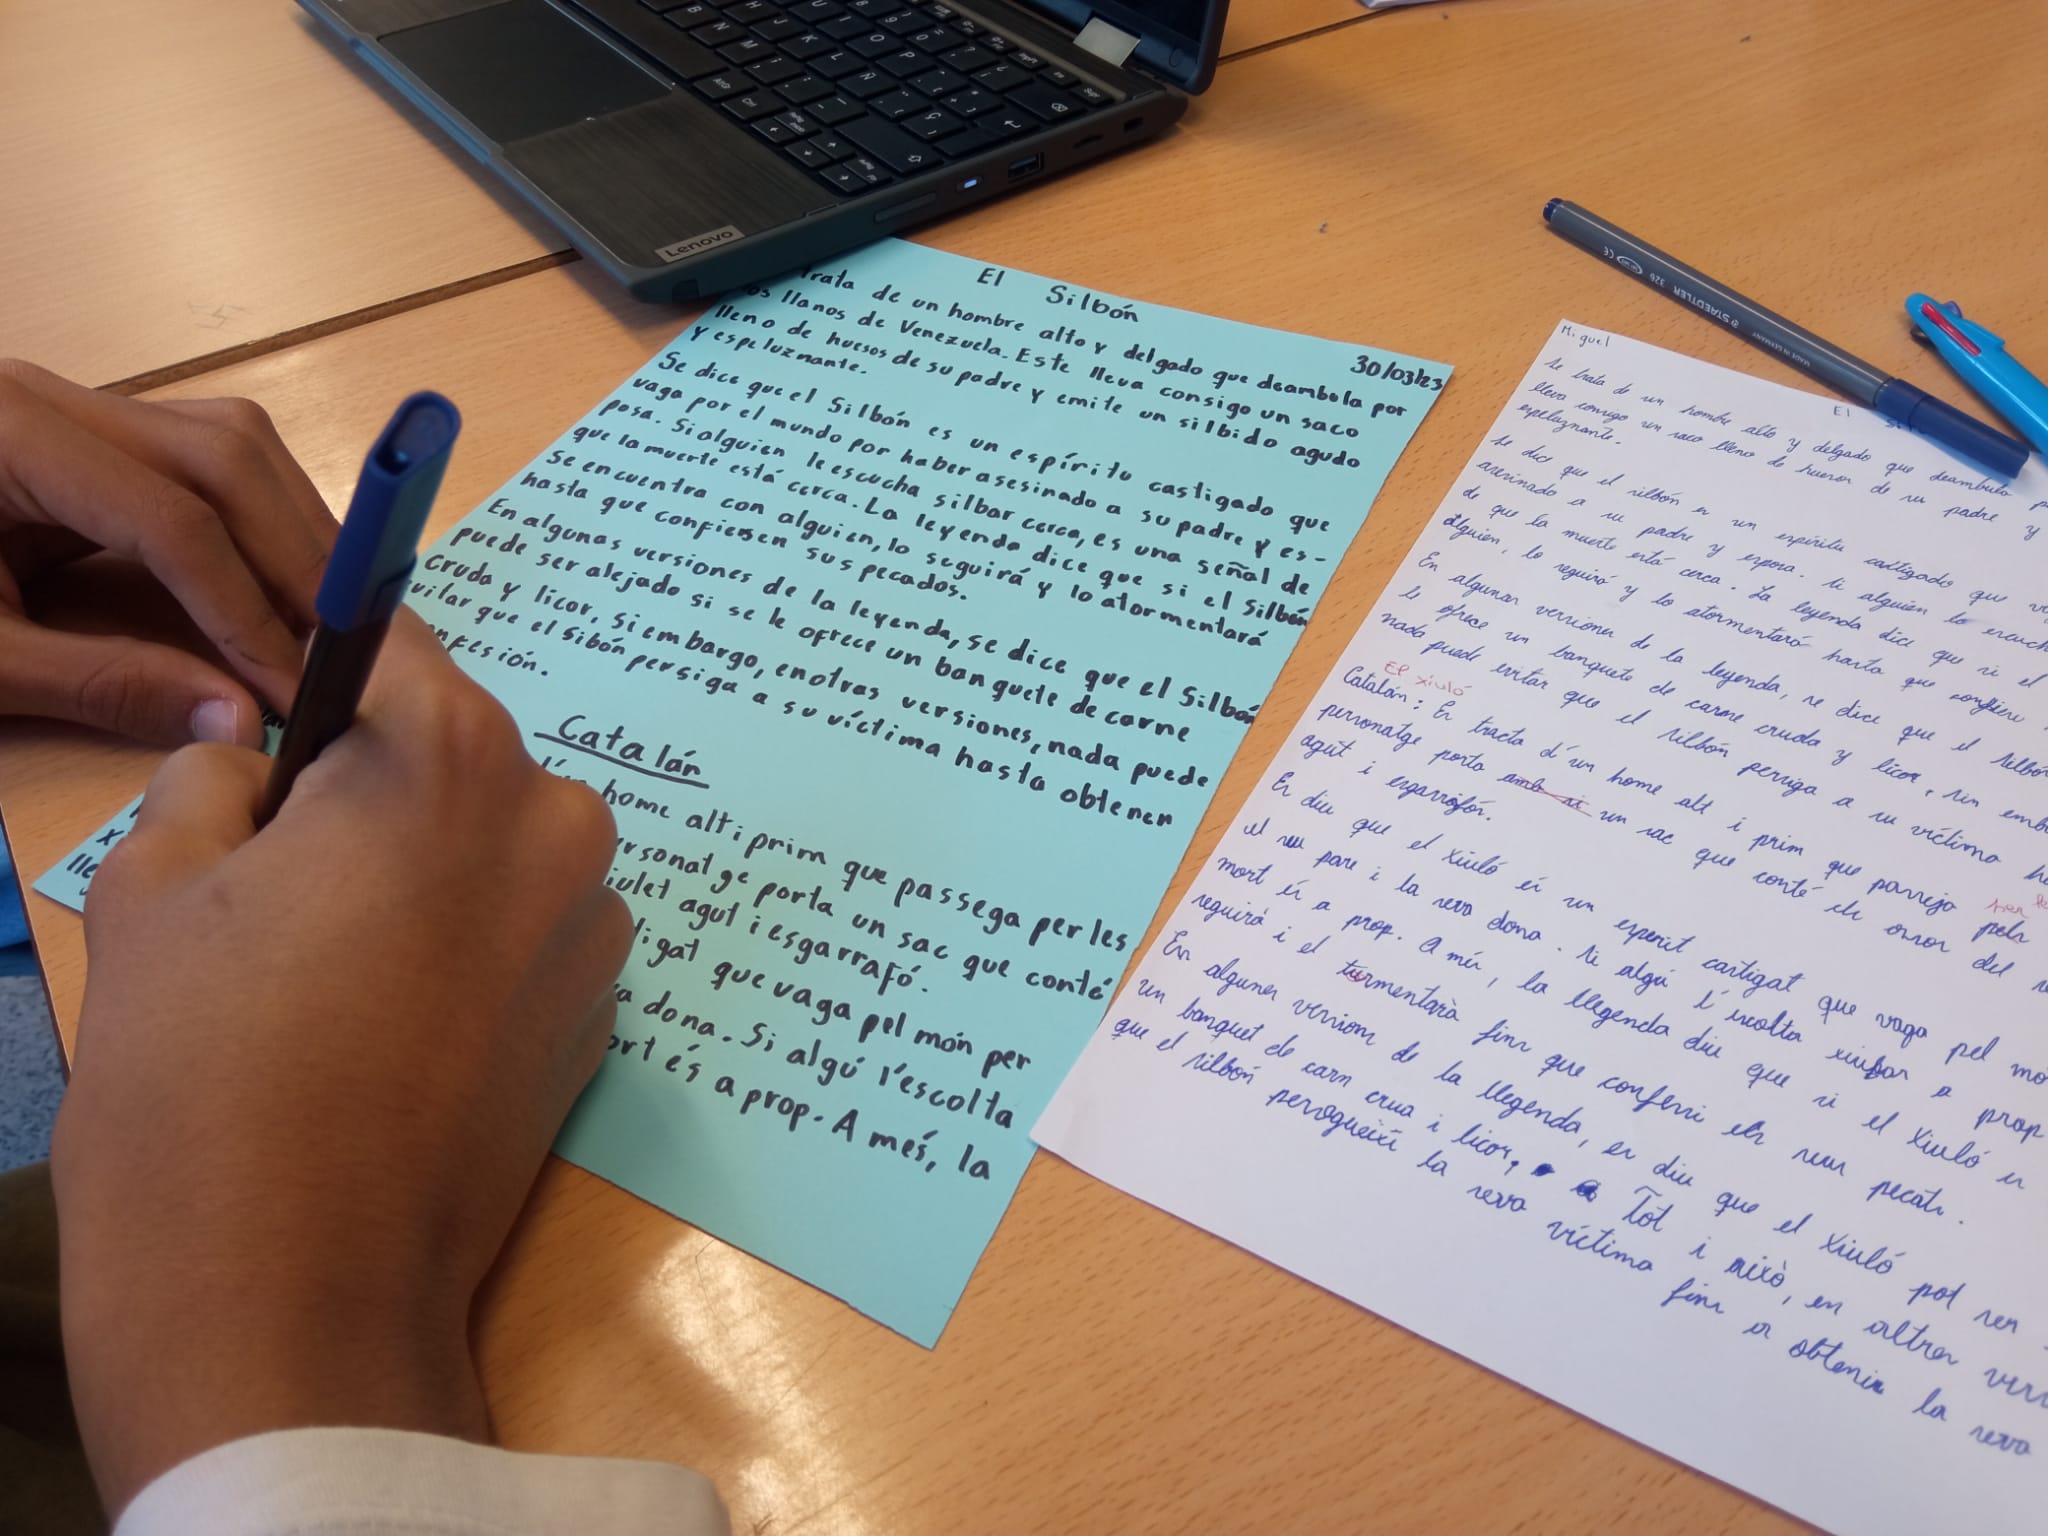 Lenovo
El Silbón
30/03/23
trata de un hombre alto y delgado que deambula por
los llanos de Venezuela. Este lleva consigo un saco
lleno de huesos de su padre y emite un silbido agudo
y espeluznante.
Se dice que el Silbón es un espíritu castigado que
vaga por el mundo por haber asesinado a su padre y es-
posa. Si alguien le escucha silbar cerca, es una señal de
que la muerte está cerca. La leyenda dice que si el Silbón
se encuentra con alguien, lo seguirá y lo atormentará
hasta que confiesen sus pecados.
En algunas versiones de la leyenda, se dice que el Silbón
puede ser alejado si se le ofrece un banquete de carne
cruda y licor, Si embargo, en otras versiones, nada puede
que el Sibón persiga a su víctima hasta obtener
Catalán
home alt i prim que passega per les
porta un sac que conté
agut i esgarrafó.
que vaga pel món per
dona. Si algú l'escolta
és a prop. A més, la
Miguel
El
Se trata de un hombre alto y delgado que deambula
lleva consigo un saco lleno de huesos de su padre y
espeluznante.
Se dice que el silbón es un espíritu castigado que
asesinado a su padre y esposa. Si alguien lo
de que la muerte está cerca. La leyenda dice que si el
alguien, lo seguirá y lo atormentará hasta que confiese
En algunas versiones de la leyenda, se dice que el silbón
le ofrece un banquete de carne cruda y licor, sin
nada puede evitar que el silbón persiga a su víctima
El xiuló
Catalán: Es tracta d'un home alt i prim que passeja pels
personatge porta amb si un sac que conté els ossos del
agut i esgarrifós.
Es diu que el xiuló és un esperit castigat que vaga pel
el seu pare i la seva dona. Si algú l'escolta xiular a prop
mort és a prop. A més, la llegenda diu que si el xiuló es
seguirà i el turmentarà fins que confessi els seus pecats.
En algunes versions de la llegenda, es diu que el xiuló pot ser
un banquet de carn crua i licor, Tot i això, en altres
que el silbón persegueixi la seva víctima fins a obtenir la seva
STAEDTLER 326
MADE IN GERMANY